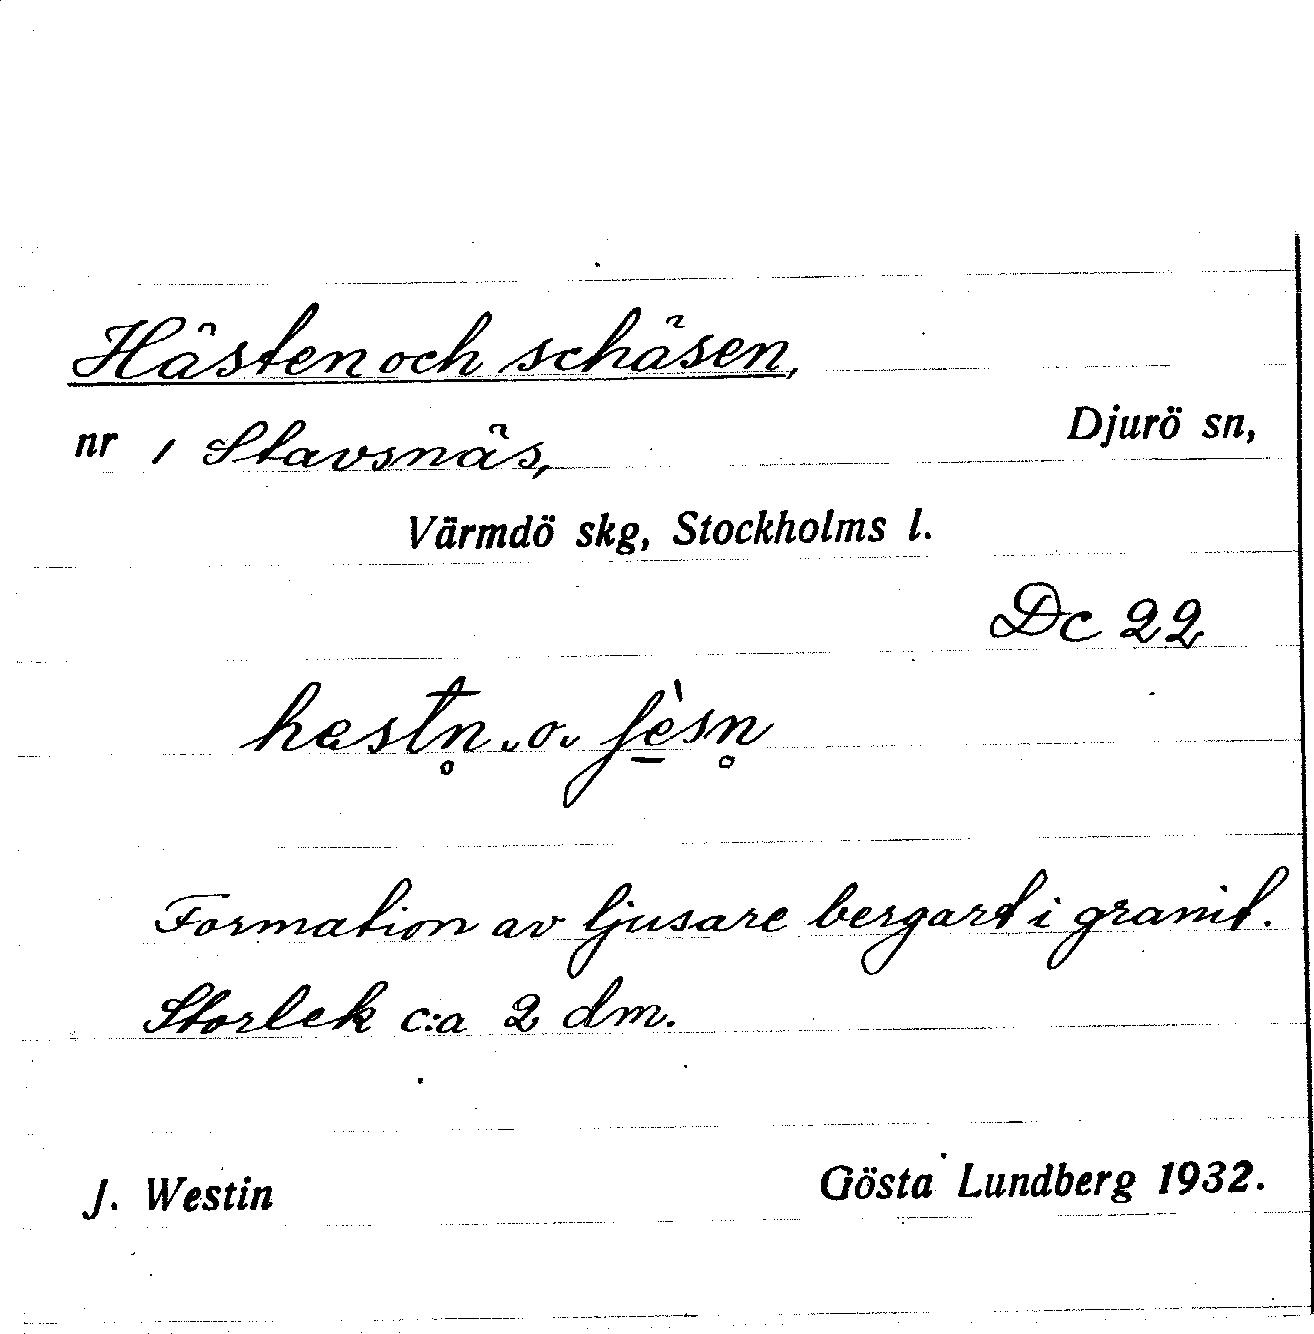 Hästen och schäsen,
nr 1 Stavsnäs, Djurö sn,
Värmdö skg, Stockholms l.
Dc 22
hestn̥ ‿o‿ ʃὲsn̥
Formation av ljusare bergart i granit.
Storlek c:a 2 dm.
J. Westin Gösta Lundberg 1932.